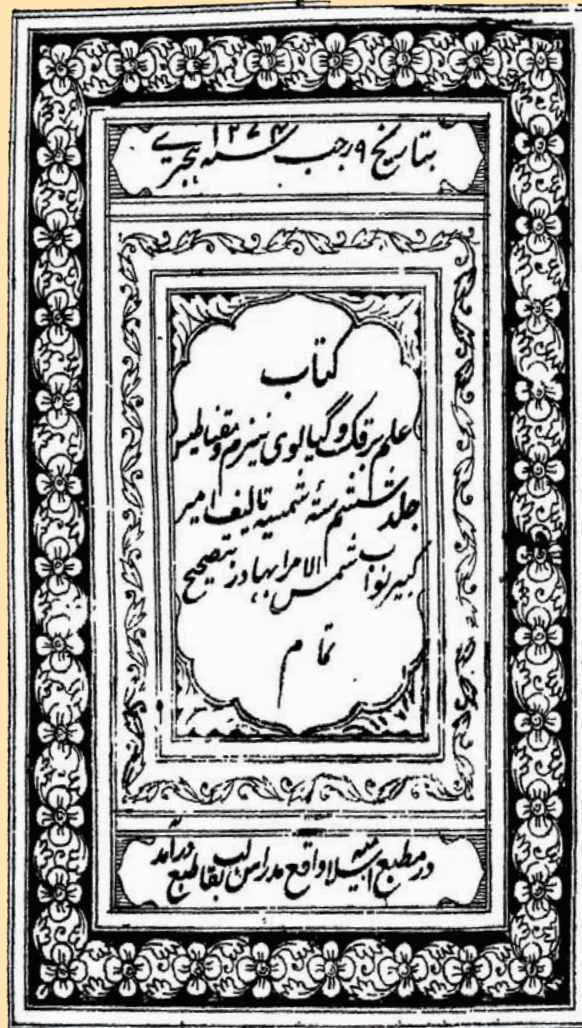 بتاریخ ۹ رجب سنہ ۱۲۷۴ ہجری
کتاب
علم برقک و گیالوی نیزم و مقناطیس
جلد ششم ستۂ شمسیہ تالیف امیر
کبیر نواب شمس الامرا بہادر بتصحیح
تمام
در مطبع واقع مدراس بقالب طبع درآمد